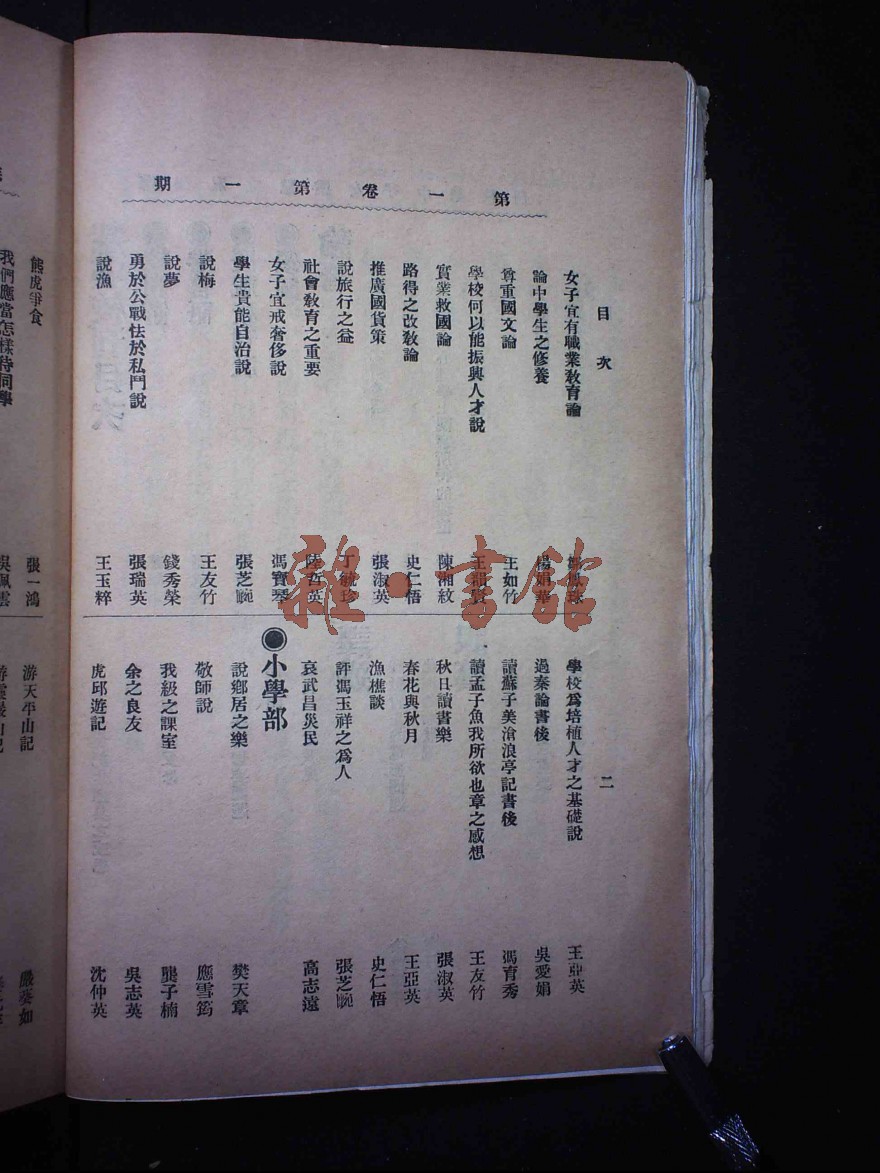 第一卷第一期
目次
二
女子宜有職業教育論
論中學生之修養 楊娟華
尊重國文論 王如竹
學校何以能振興人才說
實業救國論 陳湘紋
路得之改教論 史仁悟
推廣國貨策 張淑英
說旅行之益 丁毓珍
社會教育之重要 陸哲英
女子宜戒奢侈說 馮寶琴
學生貴能自治說 張芝畹
說梅 王友竹
說夢 錢秀榮
勇於公戰怯於私鬥說 張瑞英
說漁 王玉粹
學校爲培植人才之基礎說 王亞英
過秦論書後 吳愛娟
讀蘇子美滄浪亭記書後 馮育秀
讀孟子魚我所欲也章之感想 王友竹
秋日讀書樂 張淑英
春花與秋月 王亞英
漁樵談 史仁悟
評馮玉祥之爲人 張芝畹
哀武昌災民 高志遠
●小學部
說鄉居之樂 樊天章
敬師說 應雪筠
我級之課室 龔子楠
余之良友 吳志英
虎邱遊記 沈仲英
熊虎爭食 張一鴻
我們應當怎樣待同學 吳佩雲
游天平山記 嚴葵如
雜·書館